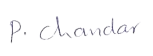 P. Chandar